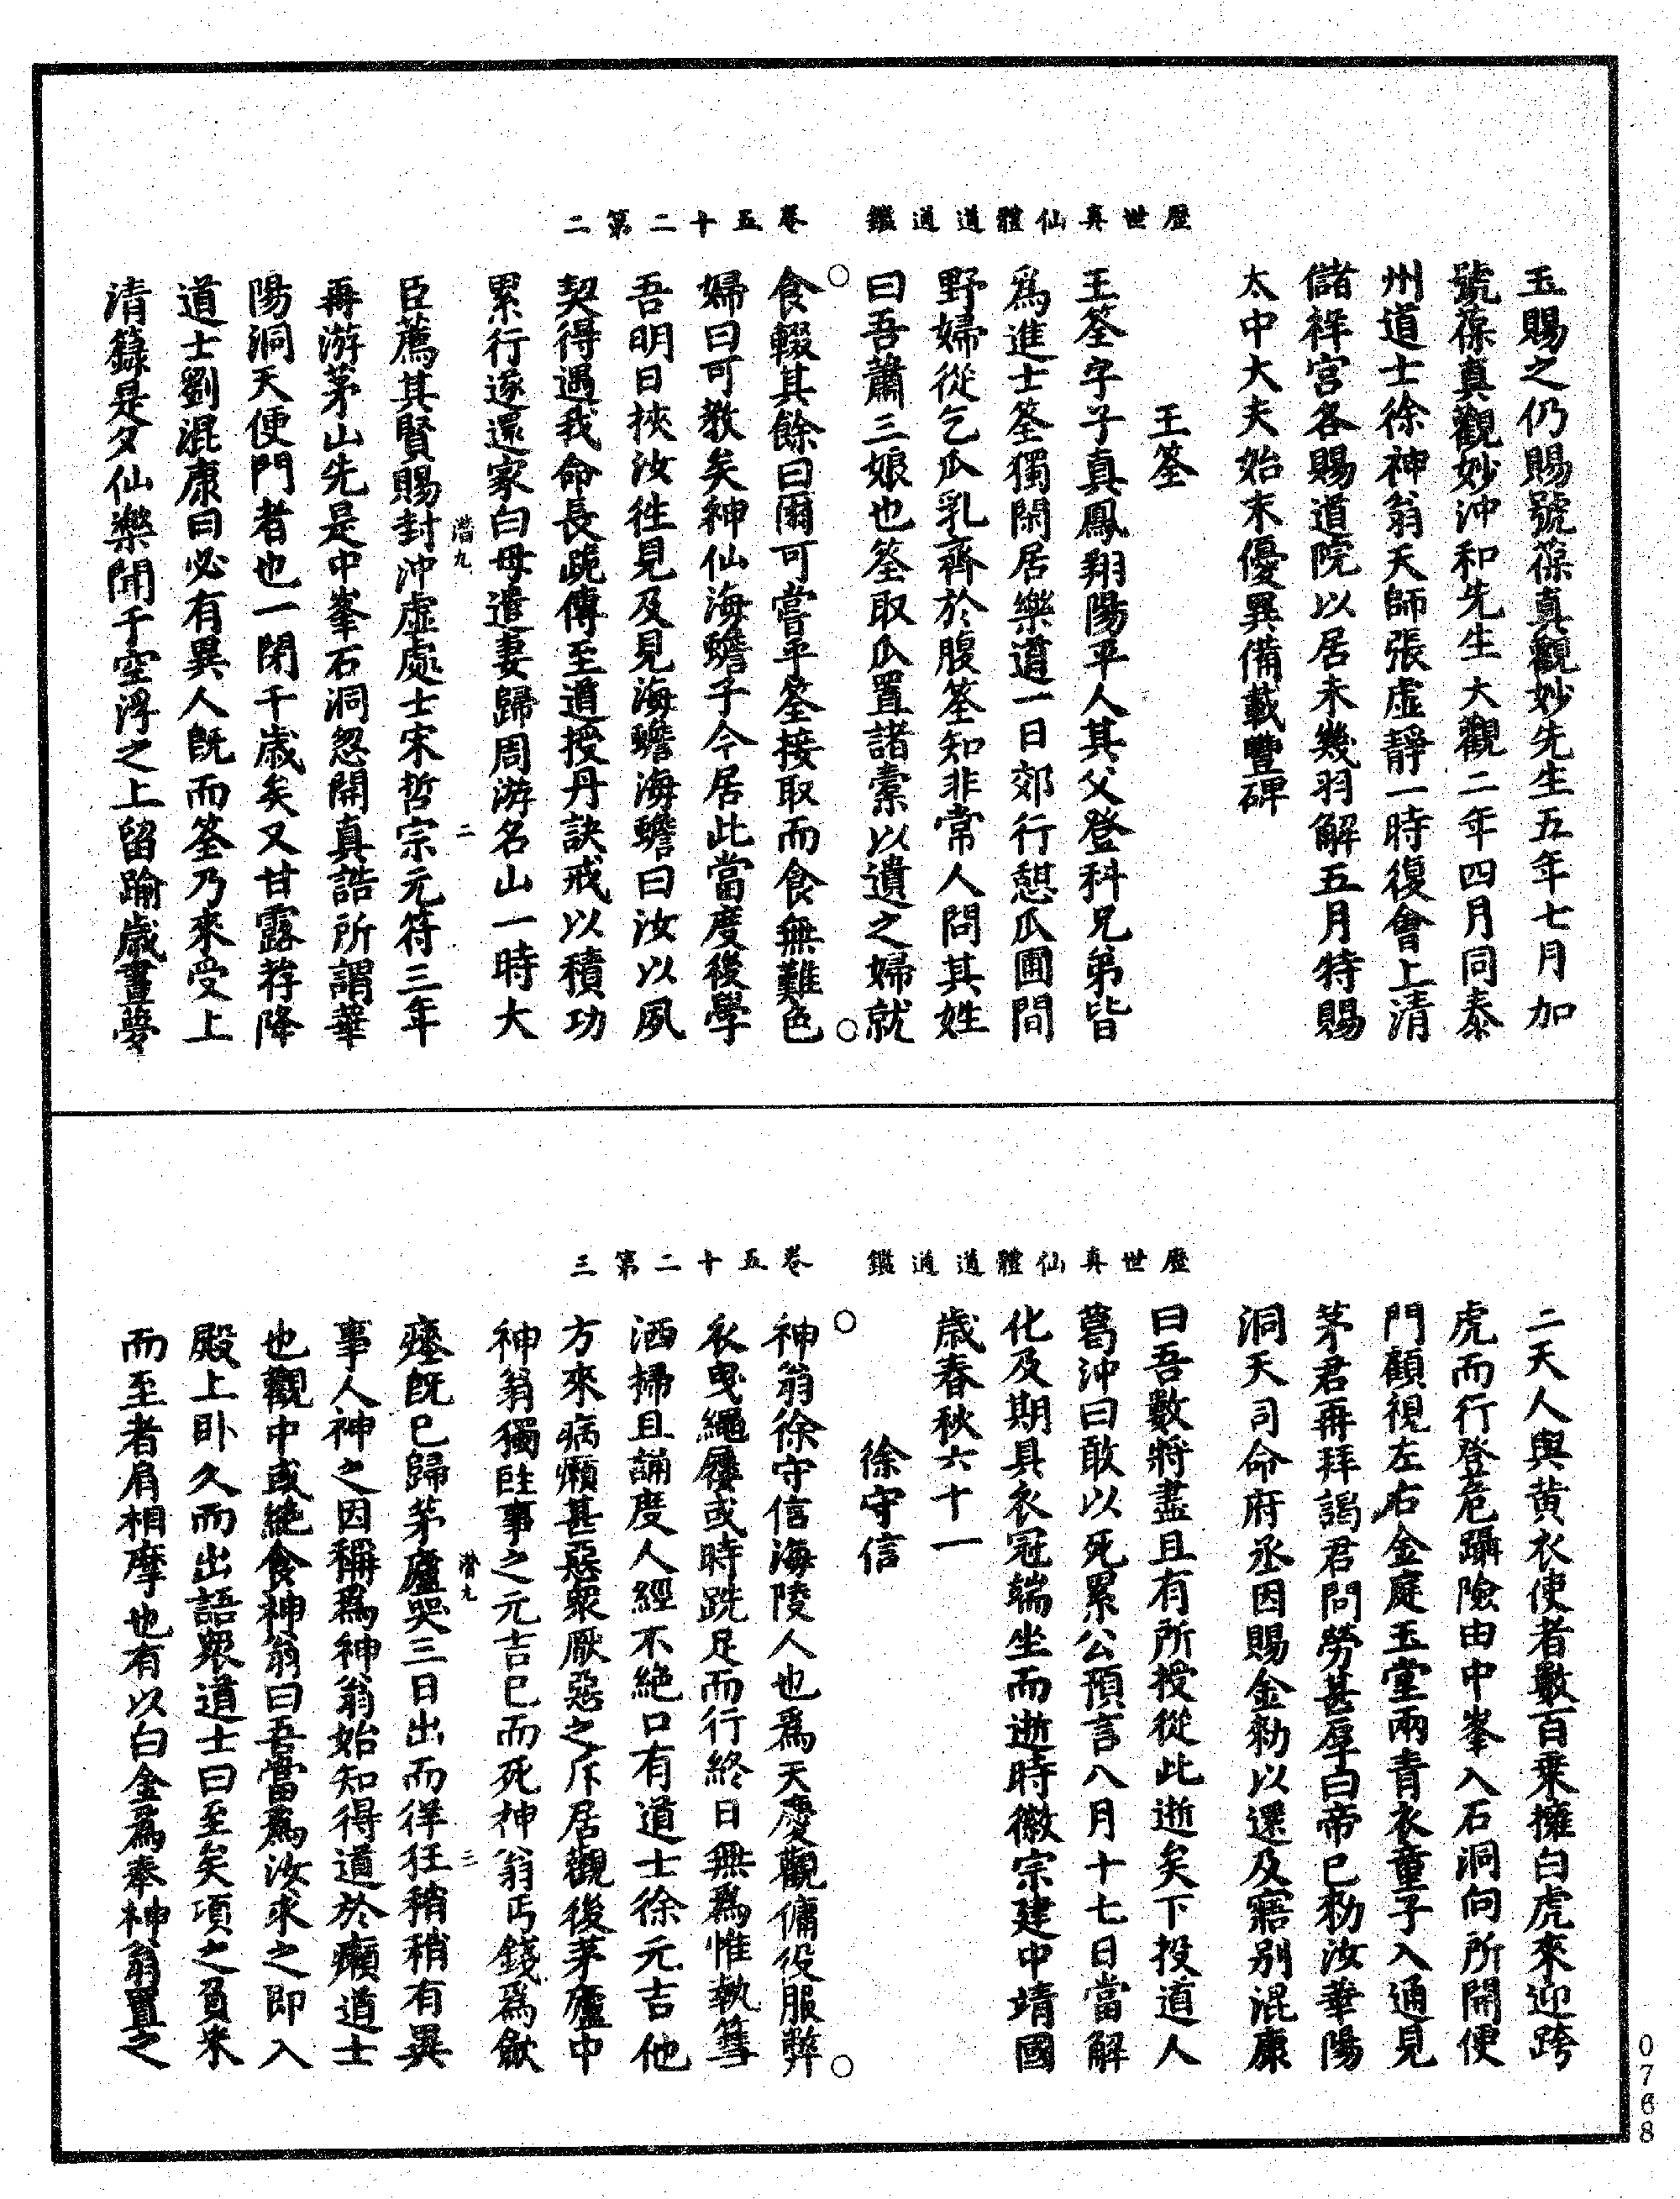 歷世真仙體道通鑑　卷五十二第二
玉賜之仍賜號葆真觀妙先生五年七月加
號葆真觀妙沖和先生大觀二年四月同泰
州道士徐神翁天師張虛靜一時復會上清
儲祥宮各賜道院以居未幾羽解五月特賜
太中大夫始末優異備載豐碑
王筌
王筌字子真鳳翔陽平人其父登科兄弟皆
為進士筌獨閑居樂道一日郊行憩瓜圃間
野婦從乞瓜乳齊於腹筌知非常人問其姓
曰吾蕭三娘也筌取瓜置諸橐以遺之婦就
食輟其餘曰爾可嘗乎筌接取而食無難色
婦曰可教矣神仙海蟾子今居此當度後學
吾明日挾汝徃見及見海蟾海蟾曰汝以夙
契得遇我命長跪傳至道授丹訣戒以積功
累行遂還家白母遣妻歸周游名山一時大
潛九　二
臣薦其賢賜封沖虛處士宋哲宗元符三年
再游茅山先是中峯石洞忽開真誥所謂華
陽洞天便門者也一閉千歲矣又甘露荐降
道士劉混康曰必有異人既而筌乃來受上
清籙是夕仙樂聞于空浮之上留踰歲晝夢
歷世真仙體道通鑑　卷五十二第三
二天人與黃衣使者數百乘擁白虎來迎跨
虎而行登危躡險由中峯入石洞向所開便
門顧視左右金庭玉堂兩青衣童子入通見
茅君再拜謁君問勞甚厚曰帝已勑汝華陽
洞天司命府丞因賜金勑以還及寤別混康
曰吾數將盡且有所授從此逝矣下投道人
葛沖曰敢以死累公預言八月十七日當解
化及期具衣冠端坐而逝時徽宗建中靖國
歲春秋六十一
徐守信
神翁徐守信海陵人也為天慶觀傭役服弊
衣曳繩屨或時跣足而行終日無為惟執篲
洒掃且誦度人經不絶口有道士徐元吉他
方來病癩甚惡衆厭惡之斥居觀後茅廬中
神翁獨旺事之元吉已而死神翁丐錢為歛
瘞旣已歸茅廬哭三日出而徉狂稍稍有異
潛九　三
事人神之因稱為神翁始知得道於癩道士
也觀中或絶食神翁曰吾當為汝求之即入
殿上卧久而出語衆道士曰至矣項之負米
而至者肩相摩也有以白金為奉神翁置之
0768